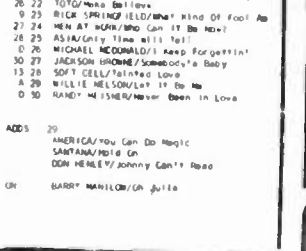 26 22 TOTO/Make Believe
9 25 RICK SPRINGFIELD/What Kind Of Fool Am
27 24 MEN AT WORK/Who Can It Be Now?
28 25 ASIA/Only Time Will Tell
D 26 MICHAEL MCDONALD/I Keep Forgettin'
30 27 JACKSON BROWNE/Somebody's Baby
13 28 SOFT CELL/Tainted Love
A 29 WILLIE NELSON/Let It Be Me
D 30 RANDY MEISNER/Never Been in Love
ADDS 29
AMERICA/You Can Do Magic
SANTANA/Hold On
DON HENLEY/Johnny Can't Read
ON BARRY MANILOW/Oh Julie